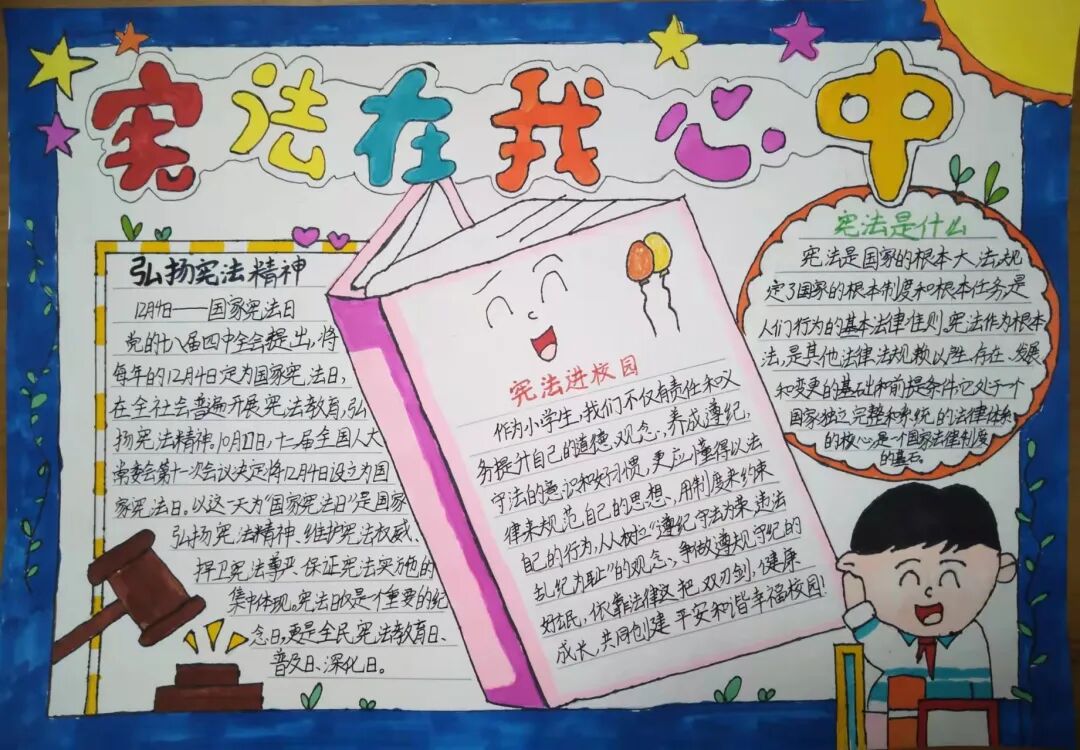 宪法在我心中
弘扬宪法精神
12月4日——国家宪法日
党的十八届四中全会提出,将
每年的12月4日定为国家宪法日,
在全社会普遍开展宪法教育,弘
扬宪法精神.10月27日,十二届全国人大
常委会第一次会议决定将12月4日设立为国
家宪法日。以这一天为"国家宪法日"是国家
弘扬宪法精神、维护宪法权威、
捍卫宪法尊严、保证宪法实施的
集中体现。宪法日仅是一个重要的纪
念日,更是全民宪法教育日、
普及日、深化日。
宪法进校园
作为小学生,我们不仅有责任和义
务提升自己的道德观念、养成遵纪、
守法的意识和好习惯,更应懂得以法
律来规范自己的思想、用制度来约束
自己的行为,人人树立"遵纪守法为荣、违法
乱纪为耻"的观念、争做遵规守纪的
好公民,依靠法律这把双刃剑,健康
成长,共同创建平安和谐幸福校园!
宪法是什么
宪法是国家的根本大法,规
定了国家的根本制度和根本任务,是
人们行为的基本法律准则.宪法作为根本
法,是其他法律法规赖以产生、存在、发展
和变更的基础和前提条件,它处于一个
国家独立、完整和系统的法律体系
的核心,是一个国家法律制度
的基石。